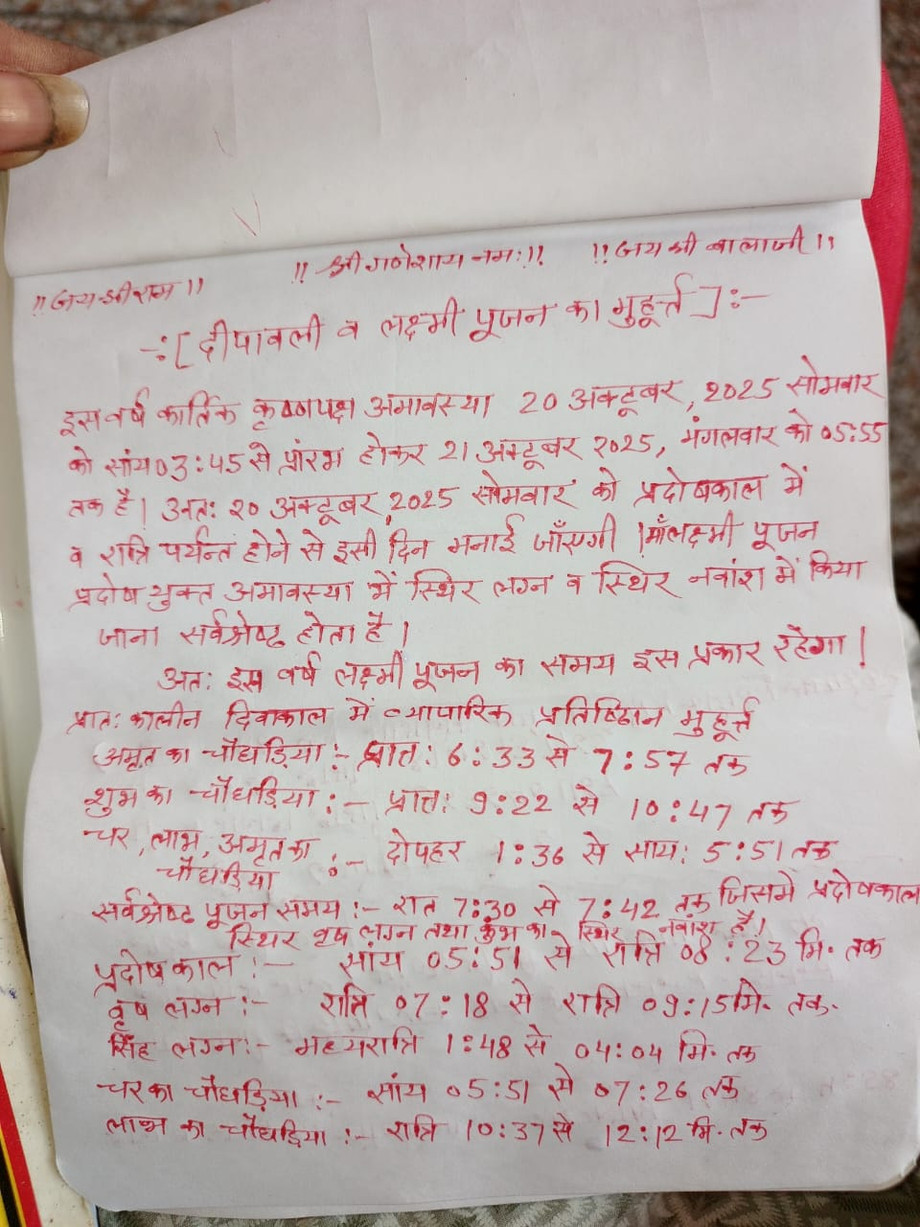 !! जय श्री राम !! !! श्री गणेशाय नमः!! !! जय श्री बालाजी !!
-:[ दीपावली व लक्ष्मी पूजन का मुहूर्त्त ]:-
इस वर्ष कार्तिक कृष्णपक्ष अमावस्या 20 अक्टूबर, 2025 सोमवार
को सांय 03:45 से प्रारंभ होकर 21 अक्टूबर 2025, मंगलवार को 05:55
तक है। अतः २० अक्टूबर, 2025 सोमवार को प्रदोषकाल में
व रात्रि पर्यन्त होने से इसी दिन मनाई जाँएगी। माँलक्ष्मी पूजन
प्रदोष युक्त अमावस्या में स्थिर लग्न व स्थिर नवांश में किया
जाना सर्वश्रेष्ठ होता है।
अतः इस वर्ष लक्ष्मी पूजन का समय इस प्रकार रहेगा।
प्रातः कालीन दिवाकाल में व्यापारिक प्रतिष्ठान मुहूर्त्त
अमृत का चौघड़िया :- प्रातः 6:33 से 7:57 तक
शुभ का चौघड़िया :- प्रातः 9:22 से 10:47 तक
चर, लाभ, अमृत का
चौघड़िया :- दोपहर 1:36 से सायः 5:51 तक
सर्वश्रेष्ठ पूजन समय :- रात 7:30 से 7:42 तक जिसमें प्रदोषकाल
स्थिर वृष लग्न तथा कुंभ का स्थिर नवांश है।
प्रदोष काल :- सांय 05:51 से रात्रि 08:23 मि. तक
वृष लग्न :- रात्रि 07:18 से रात्रि 09:15 मि. तक.
सिंह लग्न:- मध्यरात्रि 1:48 से 04:04 मि. तक
चर का चौघड़िया :- सांय 05:51 से 07:26 तक
लाभ का चौघड़िया :- रात्रि 10:37 से 12:12 मि. तक